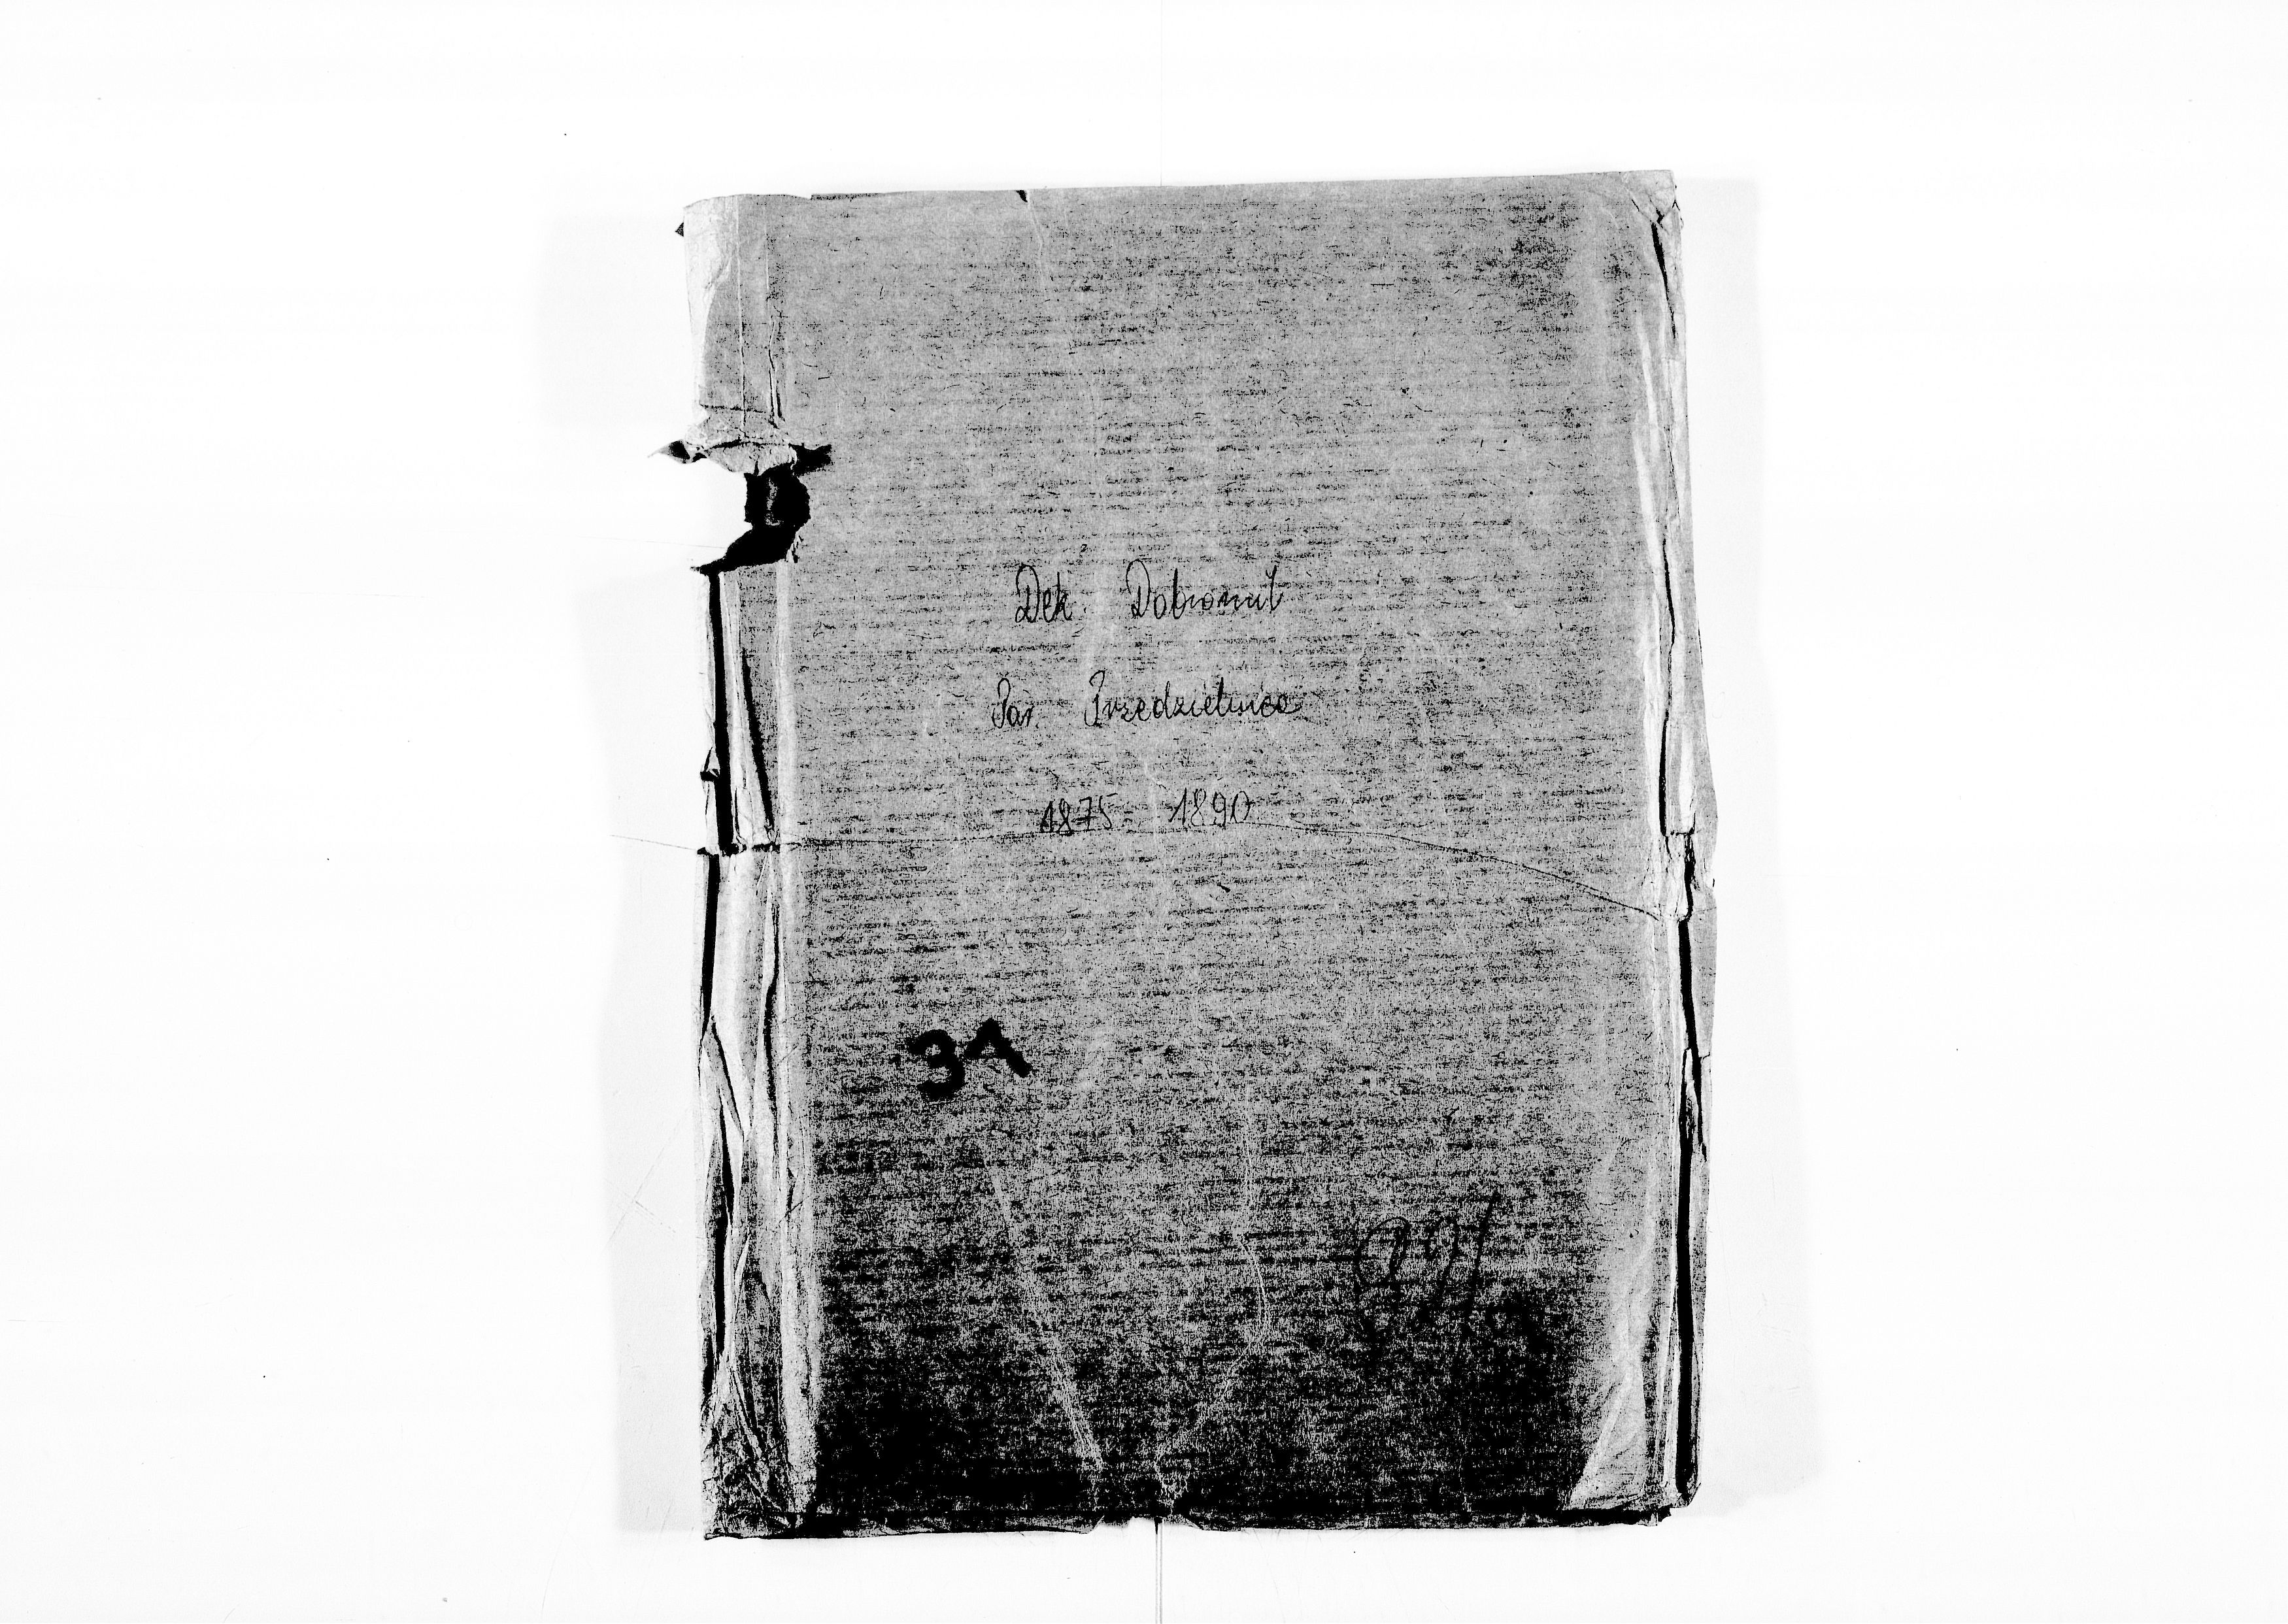 Dek. Dobromil
Par. Przedzielnica
1875 - 1890
31